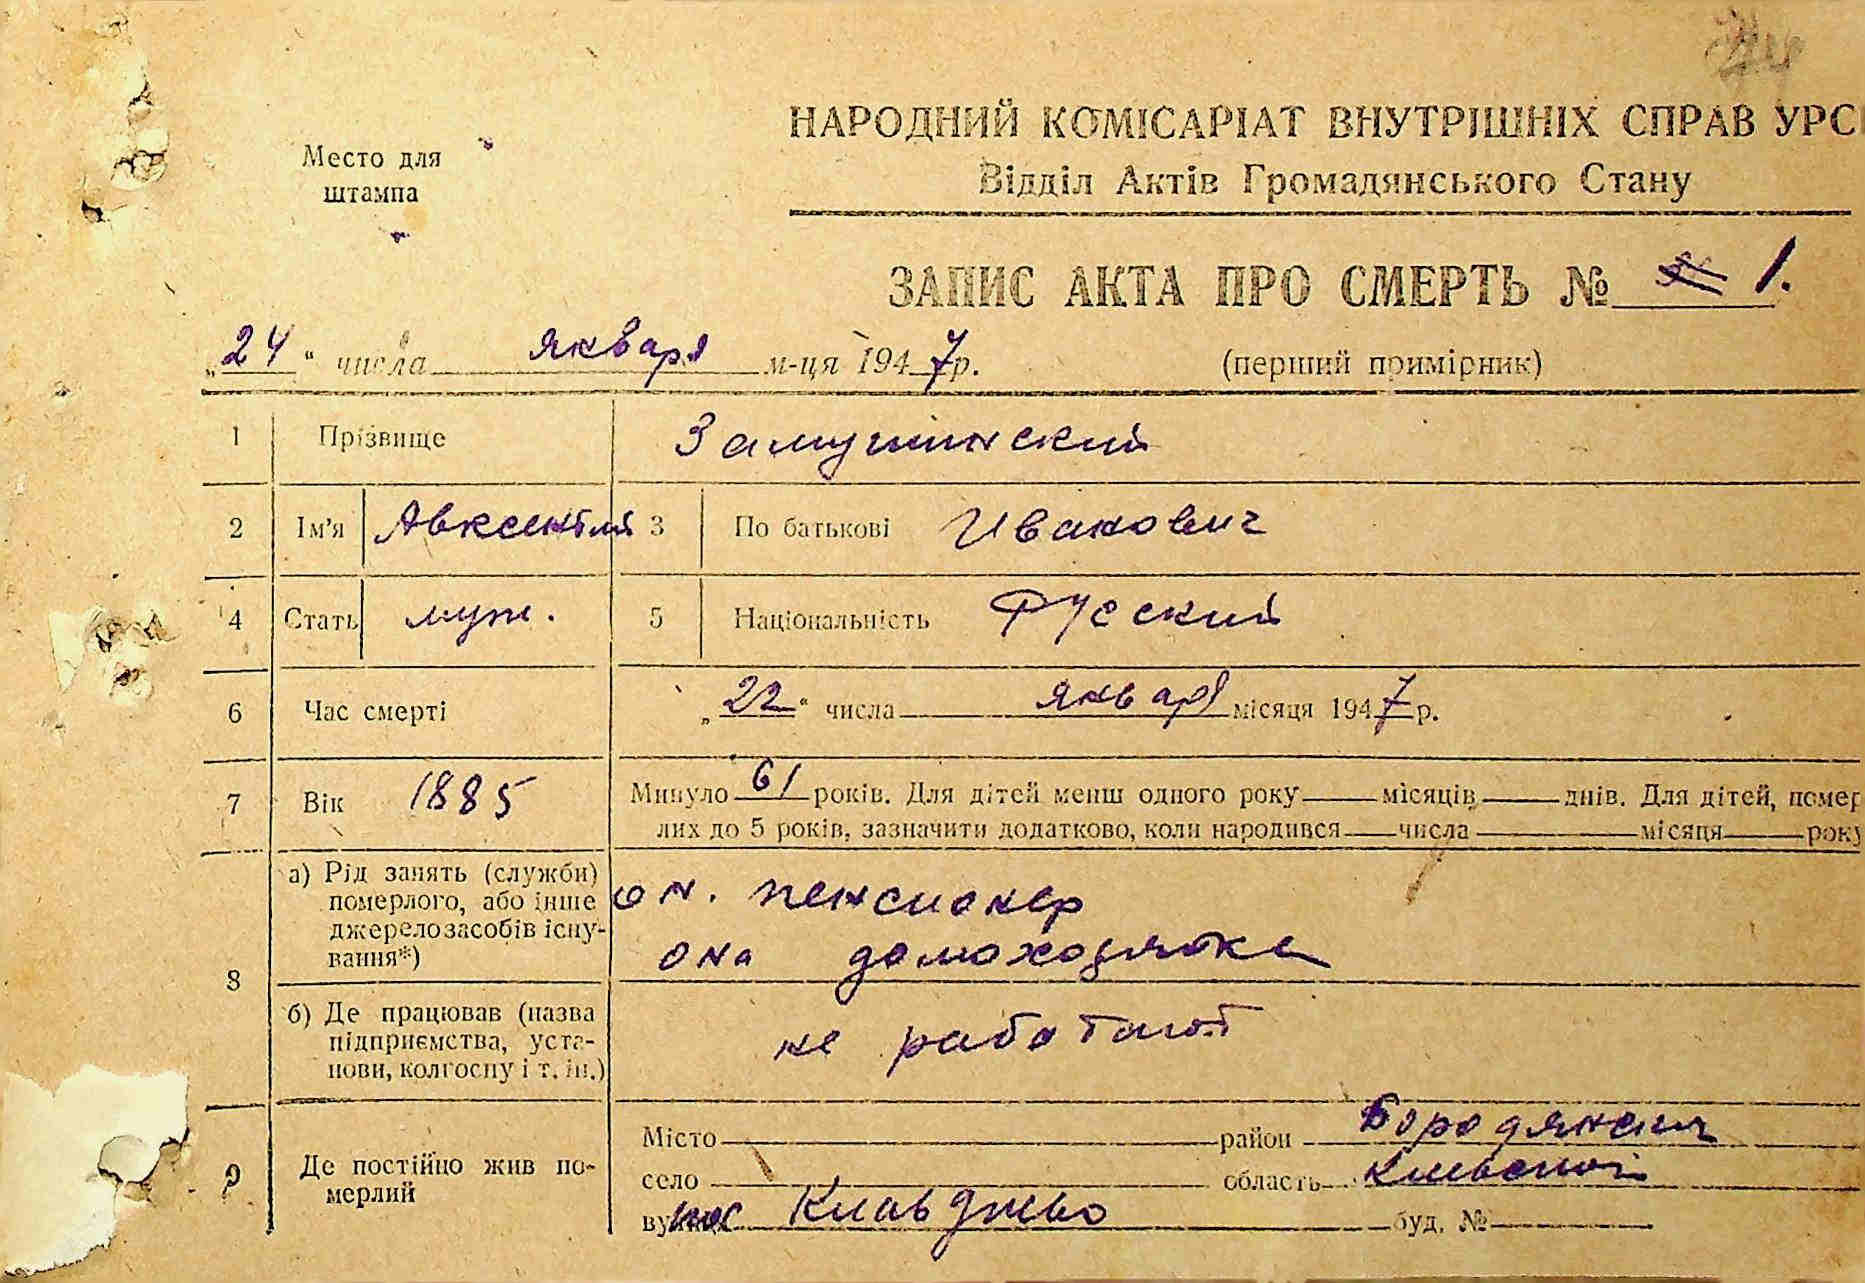 Место для
штампа
НАРОДНИЙ КОМІСАРІАТ ВНУТРІШНІХ СПРАВ УРС
Відділ Актів Громадянського Стану
ЗАПИС АКТА ПРО СМЕРТЬ № 1.
„24“ числа января м-ця 1947р. (перший примірник)
1 Прізвище Замушинский
2 Ім'я Авксентий 3 По батькові Иванович
4 Стать муж. 5 Національність Русский
6 Час смерті „22“ числа января місяця 1947р.
7 Вік 1885 Минуло 61 років. Для дітей менш одного року місяців днів. Для дітей, помер
лих до 5 років, зазначити додатково, коли народився числа місяця року
8 а) Рід занять (служби)
померлого, або інше
джерело засобів існу-
вання*)
он. пенсионер
она домохозяйка
б) Де працював (назва
підприємства, уста-
нови, колгоспу і т. ін.)
не работают
9 Де постійно жив по-
мерлий
Місто район Бородянский
село область Киевской
пос Клавдиево буд. №